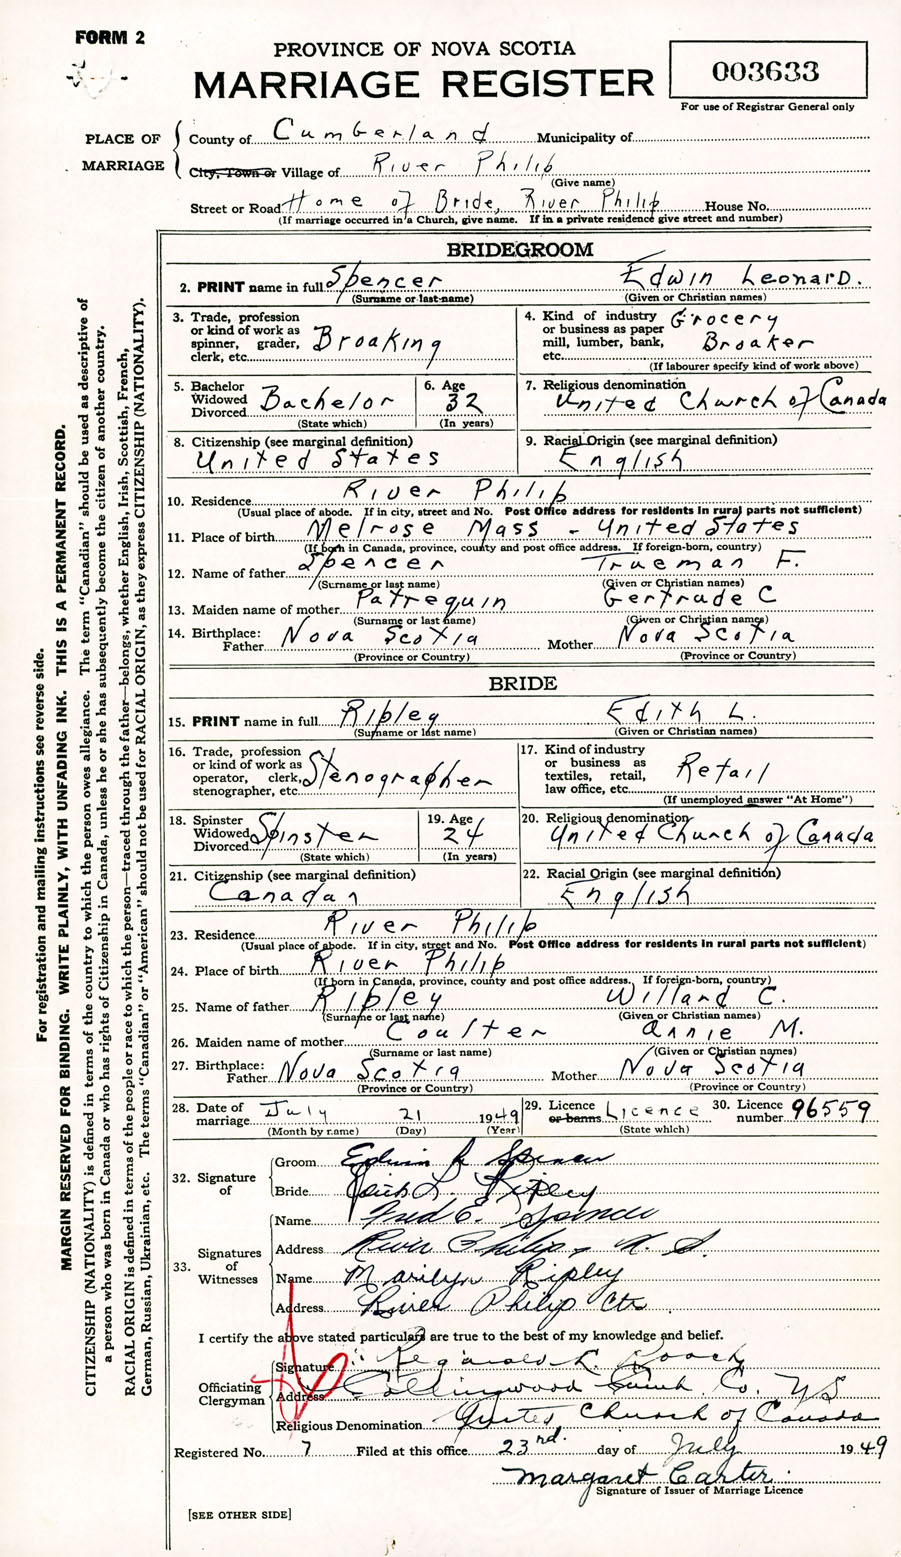 FORM 2
PROVINCE OF NOVA SCOTIA
MARRIAGE REGISTER
003633
For use of Registrar General only
PLACE OF MARRIAGE
County of Cumberland Municipality of
City, Town or Village of River Philip
(Give name)
Street or Road Home of Bride, River Philip House No.
(If marriage occurred in a Church, give name. If in a private residence give street and number)
BRIDEGROOM
2. PRINT name in full Spencer Edwin Leonard.
(Surname or last name) (Given or Christian names)
3. Trade, profession or kind of work as spinner, grader, clerk, etc. Broaking
4. Kind of industry or business as paper mill, lumber, bank, etc. Grocery Broaker
(If labourer specify kind of work above)
5. Bachelor Widowed Divorced Bachelor
(State which)
6. Age 32
(In years)
7. Religious denomination United Church of Canada
8. Citizenship (see marginal definition) United States
9. Racial Origin (see marginal definition) English
10. Residence River Philip
(Usual place of abode. If in city, street and No. Post Office address for residents in rural parts not sufficient)
11. Place of birth Melrose Mass - United States
(If born in Canada, province, county and post office address. If foreign-born, country)
12. Name of father Spencer Trueman F.
(Surname or last name) (Given or Christian names)
13. Maiden name of mother Patrequin Gertrude C
(Surname or last name) (Given or Christian names)
14. Birthplace: Father Nova Scotia Mother Nova Scotia
(Province or Country) (Province or Country)
BRIDE
15. PRINT name in full Ripley Edith L.
(Surname or last name) (Given or Christian names)
16. Trade, profession or kind of work as operator, clerk, stenographer, etc. Stenographer
17. Kind of industry or business as textiles, retail, law office, etc. Retail
(If unemployed answer "At Home")
18. Spinster Widowed Divorced Spinster
(State which)
19. Age 24
(In years)
20. Religious denomination United Church of Canada
21. Citizenship (see marginal definition) Canadian
22. Racial Origin (see marginal definition) English
23. Residence River Philip
(Usual place of abode. If in city, street and No. Post Office address for residents in rural parts not sufficient)
24. Place of birth River Philip
(If born in Canada, province, county and post office address. If foreign-born, country)
25. Name of father Ripley Willard C.
(Surname or last name) (Given or Christian names)
26. Maiden name of mother Coulter Annie M.
(Surname or last name) (Given or Christian names)
27. Birthplace: Father Nova Scotia Mother Nova Scotia
(Province or Country) (Province or Country)
28. Date of marriage July 21 1949
(Month by name) (Day) (Year)
29. Licence or banns Licence
(State which)
30. Licence number 96559
32. Signature of
Groom Edwin L Spencer
Bride Edith L. Ripley
33. Signatures of Witnesses
Name Fred E. Spencer
Address River Philip, N. S.
Name Marilyn Ripley
Address River Philip
I certify the above stated particulars are true to the best of my knowledge and belief.
Officiating Clergyman
Signature Reginald L. Roach
Address Collingwood Co. NS
Religious Denomination United Church of Canada
Registered No. 7 Filed at this office 23rd. day of July 1949
Margaret Carter
Signature of Issuer of Marriage Licence
[SEE OTHER SIDE]
For registration and mailing instructions see reverse side.
MARGIN RESERVED FOR BINDING. WRITE PLAINLY, WITH UNFADING INK. THIS IS A PERMANENT RECORD.
CITIZENSHIP (NATIONALITY) is defined in terms of the country to which the person owes allegiance. The term "Canadian" should be used as descriptive of
a person who was born in Canada or who has rights of Citizenship in Canada, unless he or she has subsequently become the citizen of another country.
RACIAL ORIGIN is defined in terms of the people or race to which the person—traced through the father—belongs, whether English, Irish, Scottish, French,
German, Russian, Ukrainian, etc. The terms "Canadian" or "American" should not be used for RACIAL ORIGIN, as they express CITIZENSHIP (NATIONALITY).